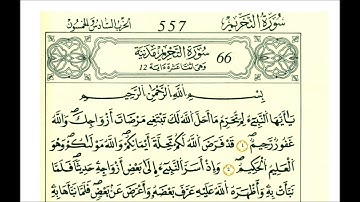 سُورَةُ التَّحْرِيمِ 557 الحزب السادس والخمسون
سُورَةُ التَّحْرِيمِ مَدَنِيَّة 66
وهي اثنتا عشرة ءاية 12
بِسْمِ اللَّهِ الرَّحْمَٰنِ الرَّحِيمِ
يَٰأَيُّهَا النَّبِيءُ لِمَ تُحَرِّمُ مَا أَحَلَّ اللَّهُ لَكَ تَبْتَغِي مَرْضَاتَ أَزْوَاجِكَ وَاللَّهُ
غَفُورٌ رَّحِيمٌ ١ قَدْ فَرَضَ اللَّهُ لَكُمْ تَحِلَّةَ أَيْمَانِكُمْ وَاللَّهُ مَوْلَاكُمْ وَهُوَ
الْعَلِيمُ الْحَكِيمُ ٢ وَإِذَ اسَرَّ النَّبِيءُ إِلَىٰ بَعْضِ أَزْوَاجِهِ حَدِيثًا فَلَمَّا
نَبَّأَتْ بِهِ وَأَظْهَرَهُ اللَّهُ عَلَيْهِ عَرَّفَ بَعْضَهُ وَأَعْرَضَ عَنْ بَعْضٍ فَلَمَّا نَبَّأَهَا بِهِ